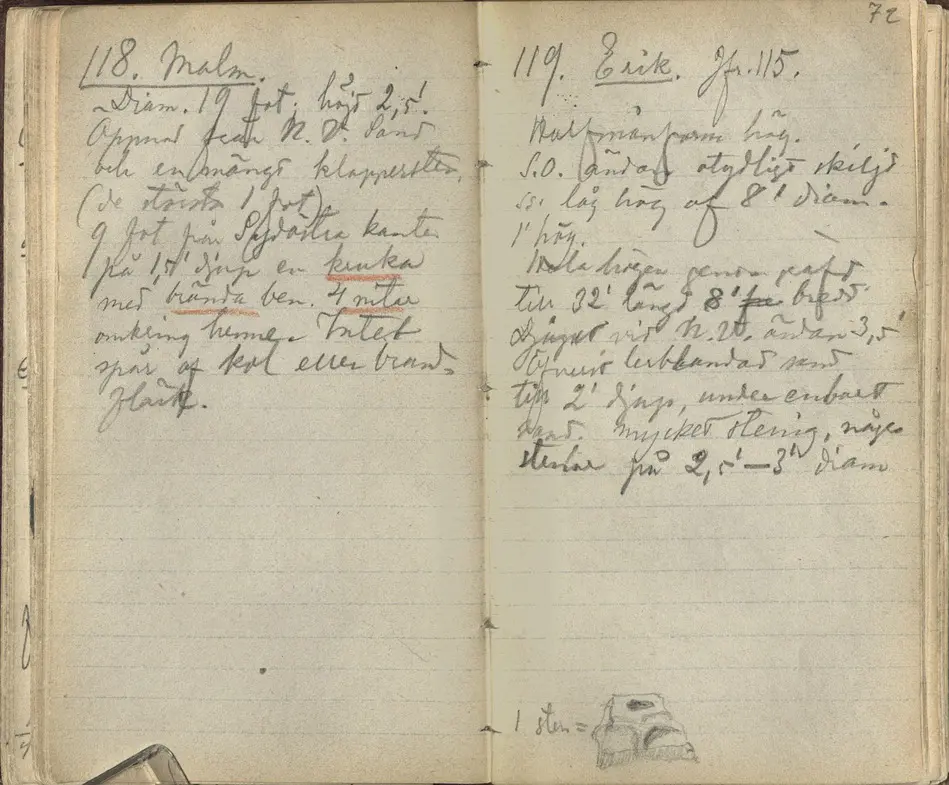 118. Malm.
Diam. 19 fot; höjd 2,5'.
Öppnad från N. V. Sand
och en mängd klappersten,
(de största 1 fot)
9 fot från Sydöstra kanten
på 1,5' djup en kruka
med brända ben. 4 nitar
omkring henne. Intet
spår af kol eller brand-
fläck.
72
119. Erik. Jfr. 115.
Halfmånform hög.
S.O. ändan otydligt skiljd
låg hög af 8' diam.
1' hög.
Hela högen genomgräfd
till 32' längd 8' bredd
Djupet vid N.V. ändan 3,5'
Öfverst lerblandad sand
till 2' djup, under enbart
sand. mycket stenig, några
stenar på 2,5'–3' diam
1 sten =